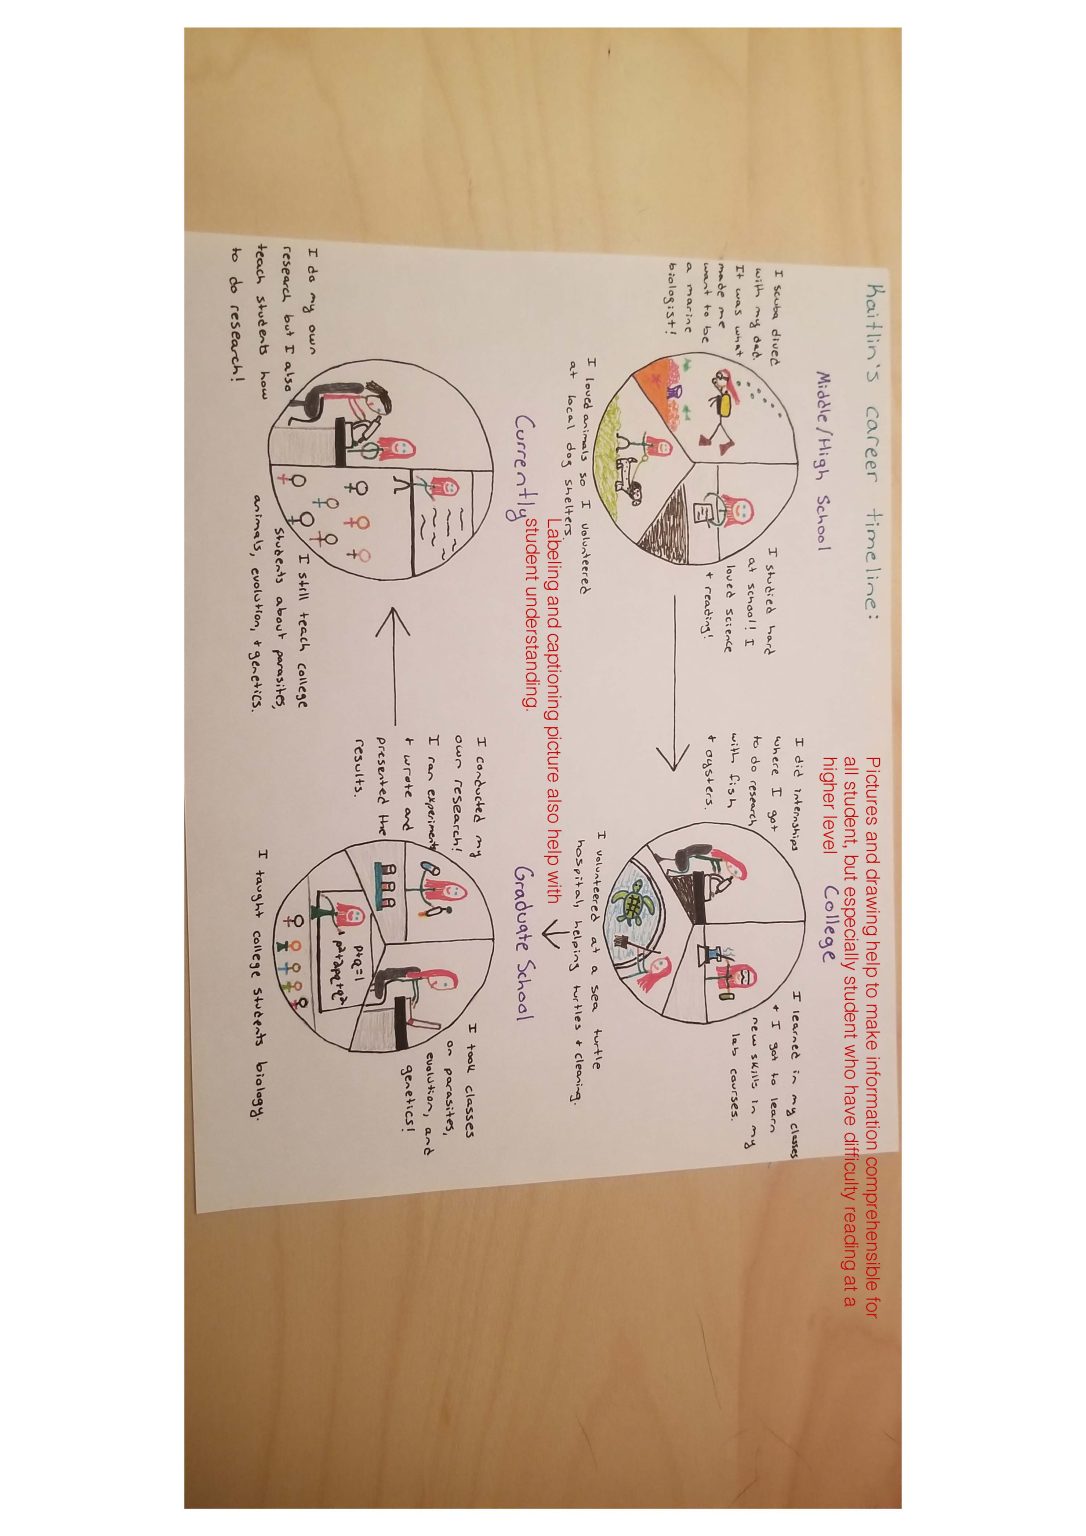 Kaitlin's career timeline:
Pictures and drawing help to make information comprehensible for
all student, but especially student who have difficulty reading at a
higher level
Middle/High School
I scuba dived
with my dad.
It was what
made me
want to be
a marine
biologist!
I studied hard
at school! I
loved science
+ reading!
I loved animals so I volunteered
at local dog shelters.
College
I did internships
where I got
to do research
with fish
+ oysters.
I learned in my classes
+ I got to learn
new skills in my
lab courses.
I volunteered at a sea turtle
hospital, helping turtles + cleaning.
Labeling and captioning picture also help with
student understanding.
Currently
I do my own
research but I also
teach students how
to do research!
I still teach college
students about parasites,
animals, evolution, + genetics.
Graduate School
I conducted my
own research!
I ran experiments
+ wrote and
presented the
results.
I took classes
on parasites,
evolution, and
genetics!
p+q=1
p²+2pq+q²
I taught college students biology.